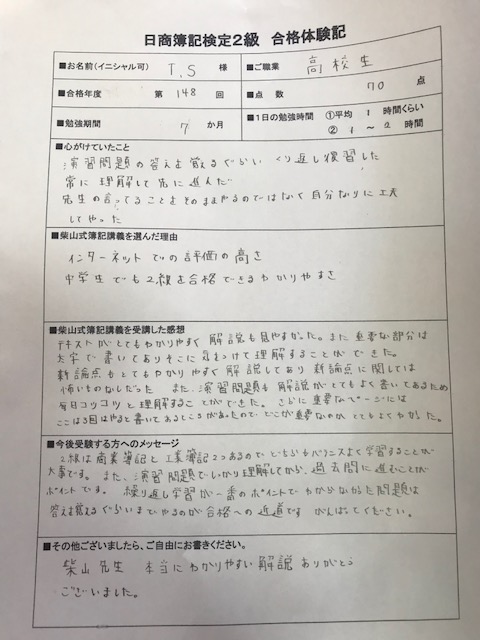 日商簿記検定2級 合格体験記
■お名前(イニシャル可) T.S 様 ■ご職業 高校生
■合格年度 第 148 回 ■点数 70 点
■勉強期間 7 か月 ■1日の勉強時間 ①平均 1 時間くらい
② 1 〜 2 時間
■心がけていたこと
演習問題の答えを覚えるぐらい くり返し復習した
常に理解して先に進んだ
先生の言ってることをそのままやるのではなく自分なりに工夫
してやった
■柴山式簿記講義を選んだ理由
インターネットでの評価の高さ
中学生でも2級を合格できるわかりやすさ
■柴山式簿記講義を受講した感想
テキストがとてもわかりやすく解説も見やすかった。また重要な部分は
太字で書いてありそこに気をつけて理解することができた。
新論点もとてもわかりやすく解説してあり新論点に関しては
怖いものなしだった また、演習問題も解説がとてもよく書いてあるため
毎日コツコツと理解することができた。さらに重要なページには
ここは3回はやると書いてあるところがあったので、どこが重要なのかとてもよくわかった。
■今後受験する方へのメッセージ
2級は商業簿記と工業簿記2つあるのでどちらもバランスよく学習することが
大事です。また、演習問題でしっかり理解してから、過去問に進むことが
ポイントです。繰り返し学習が一番のポイントでわからなかった問題は
答えを覚えるぐらいまでやるのが合格への近道です がんばってください。
■その他ございましたら、ご自由にお書きください。
柴山先生 本当にわかりやすい解説ありがとう
ございました。